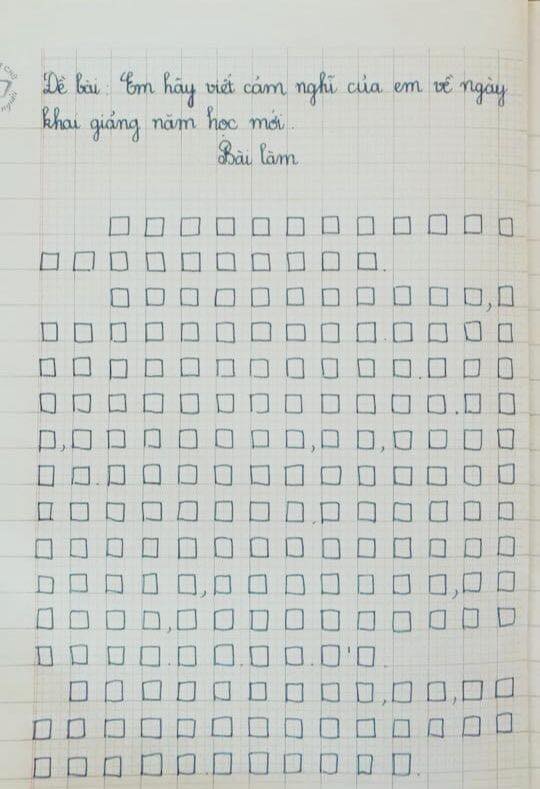 Đề bài: Em hãy viết cảm nghĩ của em về ngày
khai giảng năm học mới.
Bài làm
□ □ □ □ □ □ □ □ □ □ □ □
□ □ □ □ □ □ □ □ □ □.
□ □ □ □ □ □ □ □ □ □ □,□
□ □ □ □ □ □ □ □ □ □.□ □ □ □
□ □ □ □ □ □ □ □ □ □ □.□ □ □
□ □ □ □ □ □ □ □ □ □ □ □.□ □
□,□ □ □ □ □ □ □,□ □,□ □ □ □
□ □.□ □ □ □ □ □ □ □ □ □ □ □
□ □ □ □ □ □ □ □.□ □ □ □ □ □
□ □ □ □ □ □ □ □ □ □ □ □ □ □
□ □ □ □ □,□ □ □ □ □ □ □,□ □
□ □ □ □,□ □ □ □ □ □ □ □ □ □
□ □ □ □.□ □.□ □.□'□.
□ □ □ □ □ □ □ □ □,□ □,□ □
□ □ □ □ □ □ □ □ □ □ □ □ □ □
□ □ □ □ □.□ □ □ □ □ □.